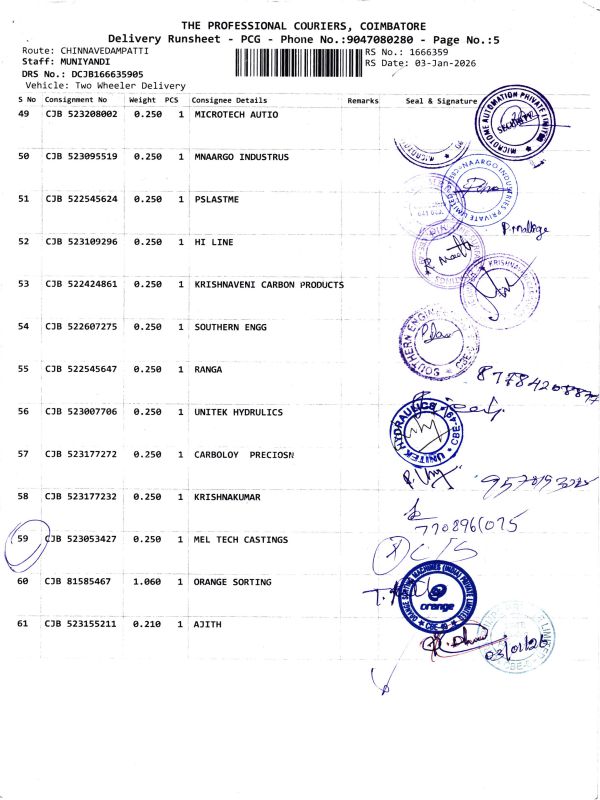 THE PROFESSIONAL COURIERS, COIMBATORE
Delivery Runsheet - PCG - Phone No.:9047080280 - Page No.:5
Route: CHINNAVEDAMPATTI RS No.: 1666359
Staff: MUNIYANDI RS Date: 03-Jan-2026
DRS No.: DCJB166635905
Vehicle: Two Wheeler Delivery
S No Consignment No Weight PCS Consignee Details Remarks Seal & Signature
49 CJB 523208002 0.250 1 MICROTECH AUTIO
MICROTOME AUTOMATION PRIVATE LIMITED
50 CJB 523095519 0.250 1 MNAARGO INDUSTRUS
NAARGO INDUSTRIES PRIVATE LIMITED
51 CJB 522545624 0.250 1 PSLASTME
52 CJB 523109296 0.250 1 HI LINE
53 CJB 522424861 0.250 1 KRISHNAVENI CARBON PRODUCTS
54 CJB 522607275 0.250 1 SOUTHERN ENGG
SOUTHERN
55 CJB 522545647 0.250 1 RANGA
56 CJB 523007706 0.250 1 UNITEK HYDRULICS
UNITEK HYDRAULICS CBE-49
57 CJB 523177272 0.250 1 CARBOLOY PRECIOSN
58 CJB 523177232 0.250 1 KRISHNAKUMAR
7708961075
59 CJB 523053427 0.250 1 MEL TECH CASTINGS
60 CJB 81585467 1.060 1 ORANGE SORTING
ORANGE SORTING MACHINES (INDIA) PRIVATE LIMITED
orange
CBE-49
61 CJB 523155211 0.210 1 AJITH
03/01/26